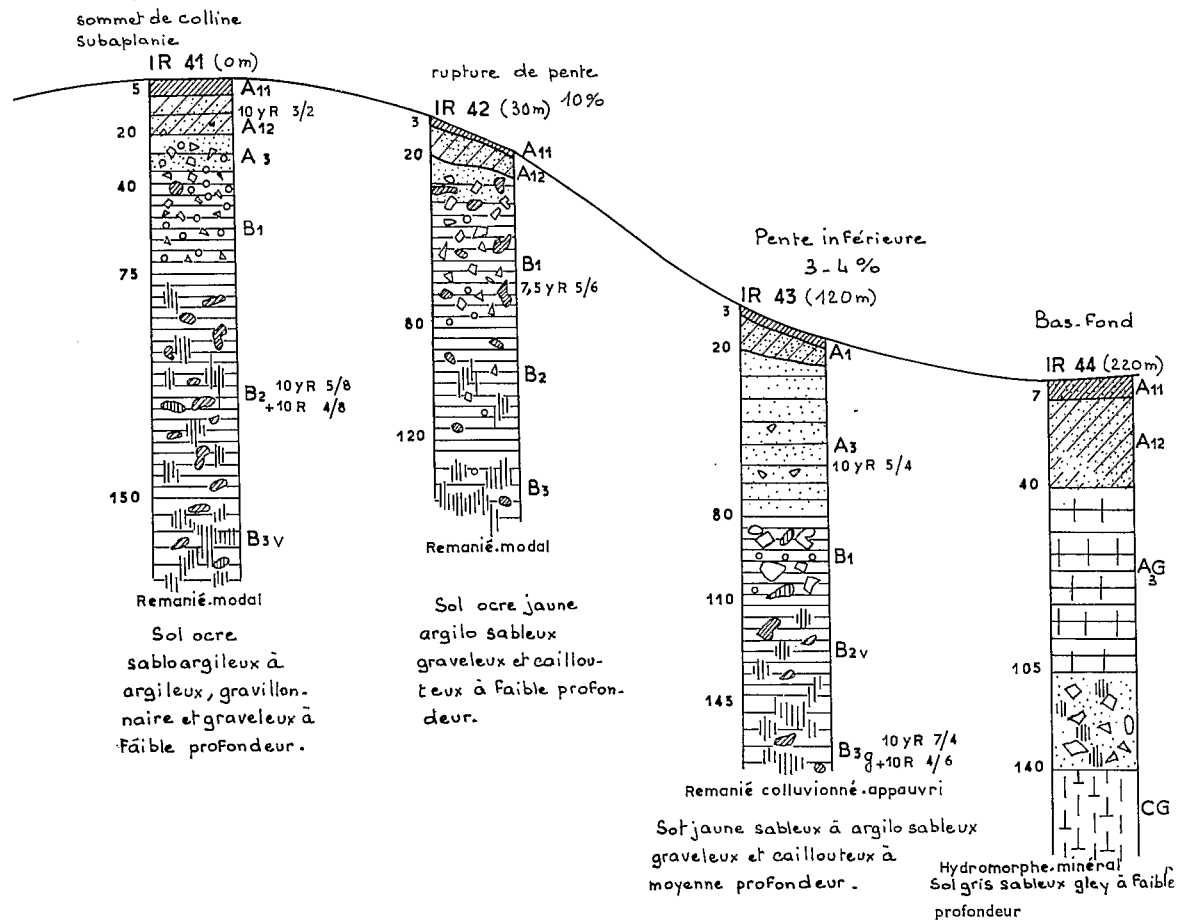 sommet de colline
subaplanie
IR 41 (0m)
5
A11
10 yR 3/2
20
A12
A3
40
B1
75
B2 10 yR 5/8
+10 R 4/8
150
B3v
Remanié.modal
Sol ocre
sabloargileux à
argileux, gravillon-
naire et graveleux à
faible profondeur.
rupture de pente
10%
IR 42 (30m)
3
A11
20
A12
B1
7,5 yR 5/6
80
B2
120
B3
Remanié.modal
Sol ocre jaune
argilo sableux
graveleux et caillou-
teux à faible profon-
deur.
Pente inférieure
3-4%
IR 43 (120m)
3
A1
20
A3
10 yR 5/4
80
B1
110
B2v
145
B3g 10 yR 7/4
+10R 4/6
Remanié colluvionné.appauvri
Sol jaune sableux à argilo sableux
graveleux et caillouteux à
moyenne profondeur.
Bas-fond
IR 44 (220m)
7
A11
A12
40
A3G
105
140
CG
Hydromorphe.minéral
Sol gris sableux gley à faible
profondeur